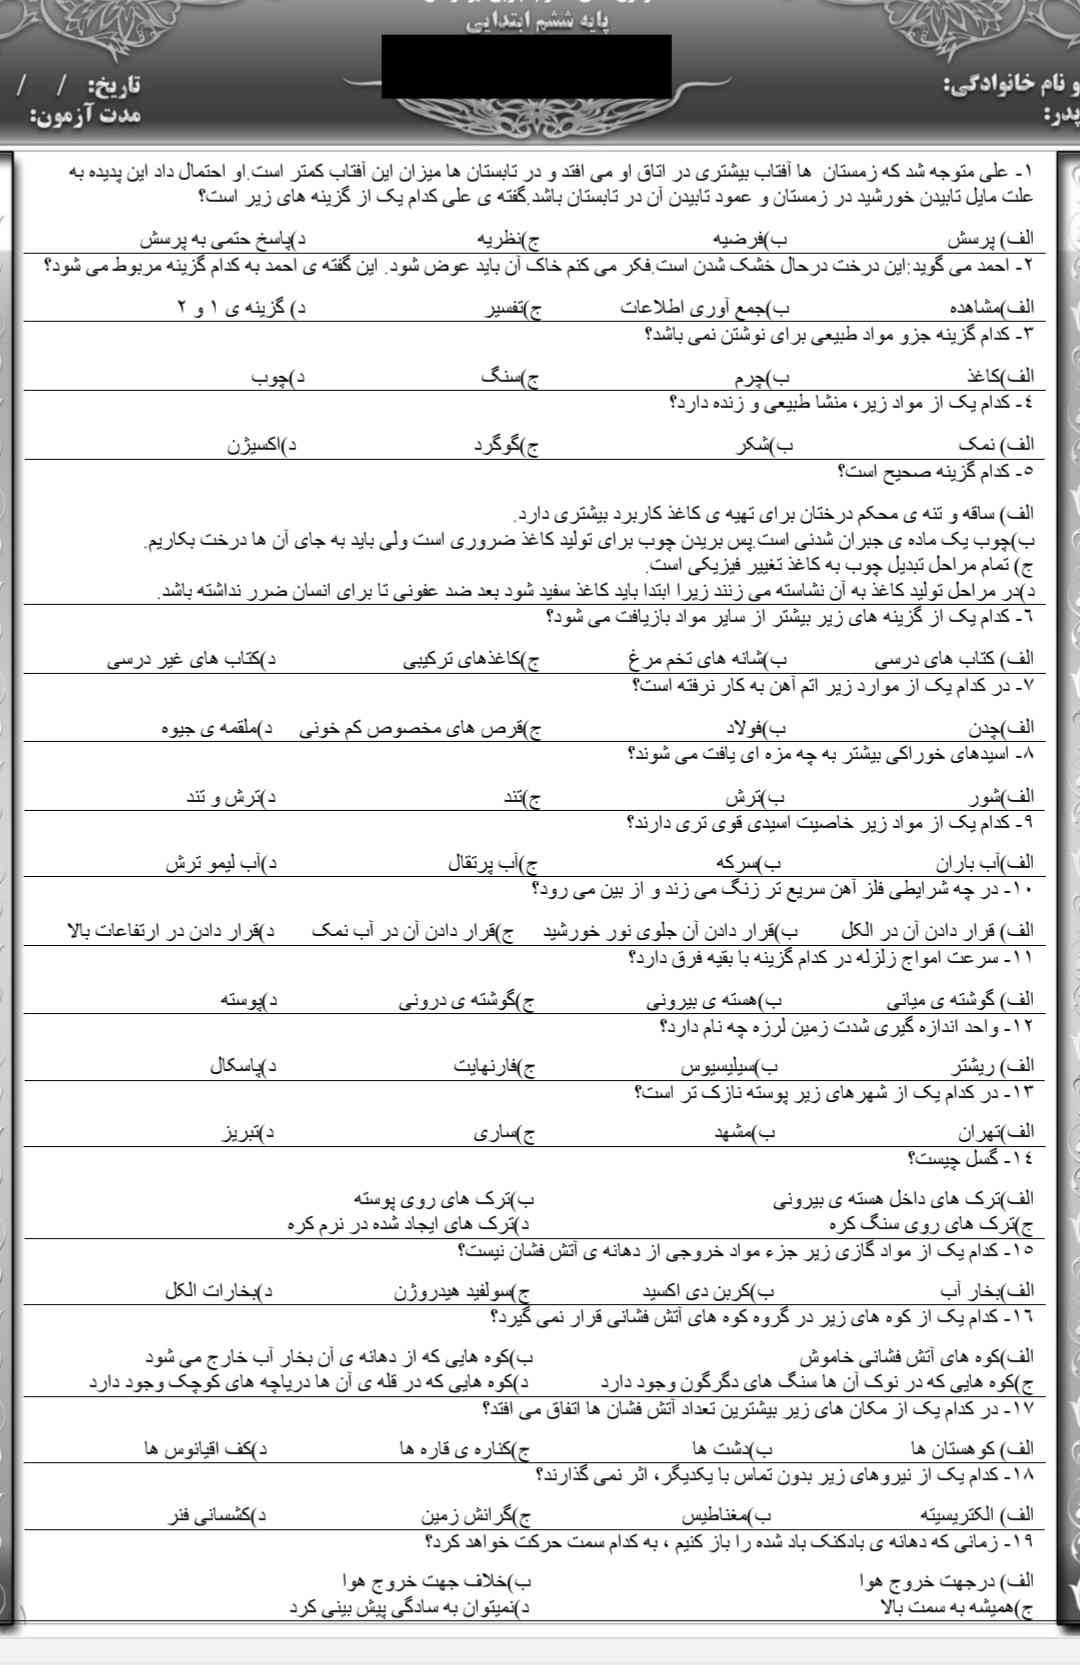 پایه ششم ابتدایی
و نام خانوادگی:
تاریخ: / /
پدر:
مدت آزمون:
۱- علی متوجه شد که زمستان ها آفتاب بیشتری در اتاق او می افتد و در تابستان ها میزان این آفتاب کمتر است.او احتمال داد این پدیده به
علت مایل تابیدن خورشید در زمستان و عمود تابیدن آن در تابستان باشد.گفته ی علی کدام یک از گزینه های زیر است؟
الف) پرسش ب)فرضیه ج)نظریه د)پاسخ حتمی به پرسش
۲- احمد می گوید:این درخت درحال خشک شدن است.فکر می کنم خاک آن باید عوض شود. این گفته ی احمد به کدام گزینه مربوط می شود؟
الف)مشاهده ب)جمع آوری اطلاعات ج)تفسیر د) گزینه ی ۱ و ۲
۳- کدام گزینه جزو مواد طبیعی برای نوشتن نمی باشد؟
الف)کاغذ ب)چرم ج)سنگ د)چوب
۴- کدام یک از مواد زیر، منشا طبیعی و زنده دارد؟
الف) نمک ب)شکر ج)گوگرد د)اکسیژن
۵- کدام گزینه صحیح است؟
الف) ساقه و تنه ی محکم درختان برای تهیه ی کاغذ کاربرد بیشتری دارد.
ب)چوب یک ماده ی جبران شدنی است.پس بریدن چوب برای تولید کاغذ ضروری است ولی باید به جای آن ها درخت بکاریم.
ج) تمام مراحل تبدیل چوب به کاغذ تغییر فیزیکی است.
د)در مراحل تولید کاغذ به آن نشاسته می زنند زیرا ابتدا باید کاغذ سفید شود بعد ضد عفونی تا برای انسان ضرر نداشته باشد.
۶- کدام یک از گزینه های زیر بیشتر از سایر مواد بازیافت می شود؟
الف) کتاب های درسی ب)شانه های تخم مرغ ج)کاغذهای ترکیبی د)کتاب های غیر درسی
۷- در کدام یک از موارد زیر اتم آهن به کار نرفته است؟
الف)چدن ب)فولاد ج)قرص های مخصوص کم خونی د)ملقمه ی جیوه
۸- اسیدهای خوراکی بیشتر به چه مزه ای یافت می شوند؟
الف)شور ب)ترش ج)تند د)ترش و تند
۹- کدام یک از مواد زیر خاصیت اسیدی قوی تری دارند؟
الف)آب باران ب)سرکه ج)آب پرتقال د)آب لیمو ترش
۱۰- در چه شرایطی فلز آهن سریع تر زنگ می زند و از بین می رود؟
الف) قرار دادن آن در الکل ب)قرار دادن آن جلوی نور خورشید ج)قرار دادن آن در آب نمک د)قرار دادن در ارتفاعات بالا
۱۱- سرعت امواج زلزله در کدام گزینه با بقیه فرق دارد؟
الف) گوشته ی میانی ب)هسته ی بیرونی ج)گوشته ی درونی د)پوسته
۱۲- واحد اندازه گیری شدت زمین لرزه چه نام دارد؟
الف) ریشتر ب)سیلیسیوس ج)فارنهایت د)پاسکال
۱۳- در کدام یک از شهرهای زیر پوسته نازک تر است؟
الف)تهران ب)مشهد ج)ساری د)تبریز
۱۴- گسل چیست؟
الف)ترک های داخل هسته ی بیرونی ب)ترک های روی پوسته
ج)ترک های روی سنگ کره د)ترک های ایجاد شده در نرم کره
۱۵- کدام یک از مواد گازی زیر جزء مواد خروجی از دهانه ی آتش فشان نیست؟
الف)بخار آب ب)کربن دی اکسید ج)سولفید هیدروژن د)بخارات الکل
۱۶- کدام یک از کوه های زیر در گروه کوه های آتش فشانی قرار نمی گیرد؟
الف)کوه های آتش فشانی خاموش ب)کوه هایی که از دهانه ی آن بخار آب خارج می شود
ج)کوه هایی که در نوک آن ها سنگ های دگرگون وجود دارد د)کوه هایی که در قله ی آن ها دریاچه های کوچک وجود دارد
۱۷- در کدام یک از مکان های زیر بیشترین تعداد آتش فشان ها اتفاق می افتد؟
الف) کوهستان ها ب)دشت ها ج)کناره ی قاره ها د)کف اقیانوس ها
۱۸- کدام یک از نیروهای زیر بدون تماس با یکدیگر، اثر نمی گذارند؟
الف) الکتریسیته ب)مغناطیس ج)گرانش زمین د)کشسانی فنر
۱۹- زمانی که دهانه ی بادکنک باد شده را باز کنیم ، به کدام سمت حرکت خواهد کرد؟
الف) درجهت خروج هوا ب)خلاف جهت خروج هوا
ج)همیشه به سمت بالا د)نمیتوان به سادگی پیش بینی کرد
۱